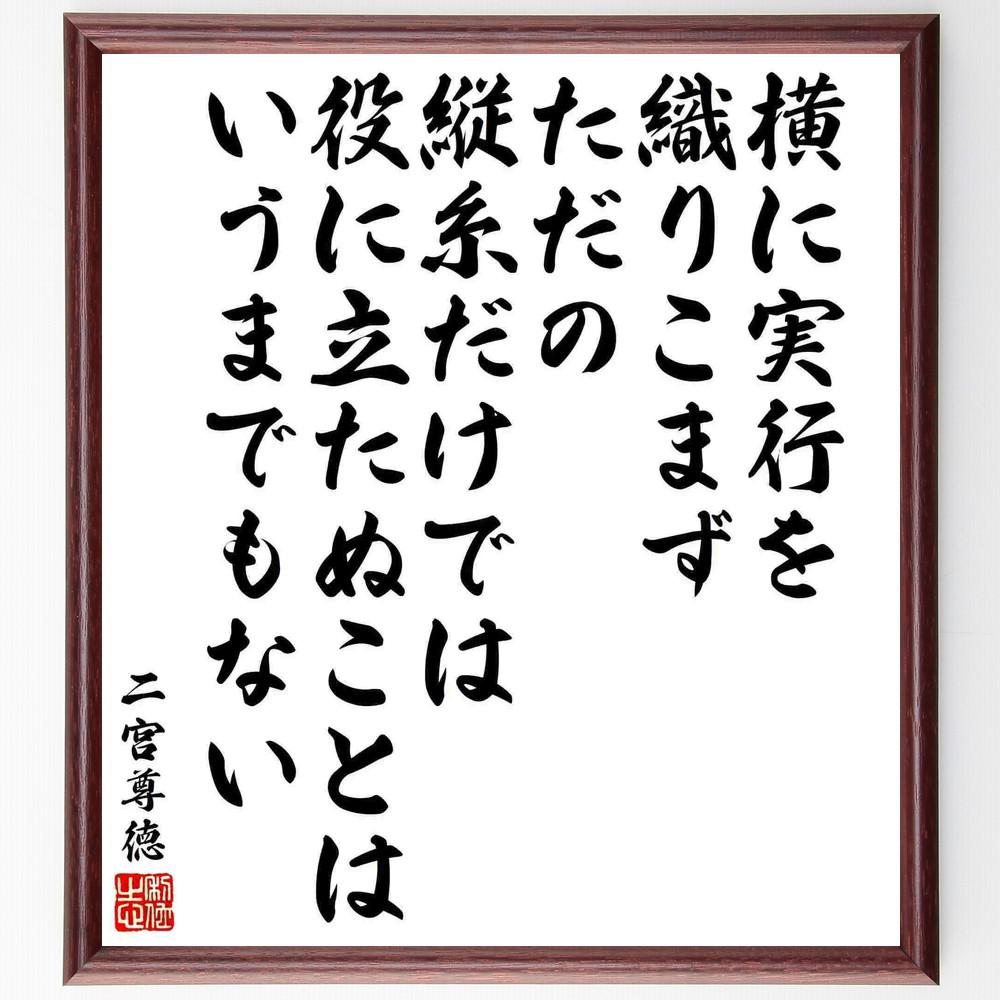 横に実行を
織りこまず
ただの
縦糸だけでは
役に立たぬことは
いうまでもない
二宮尊徳